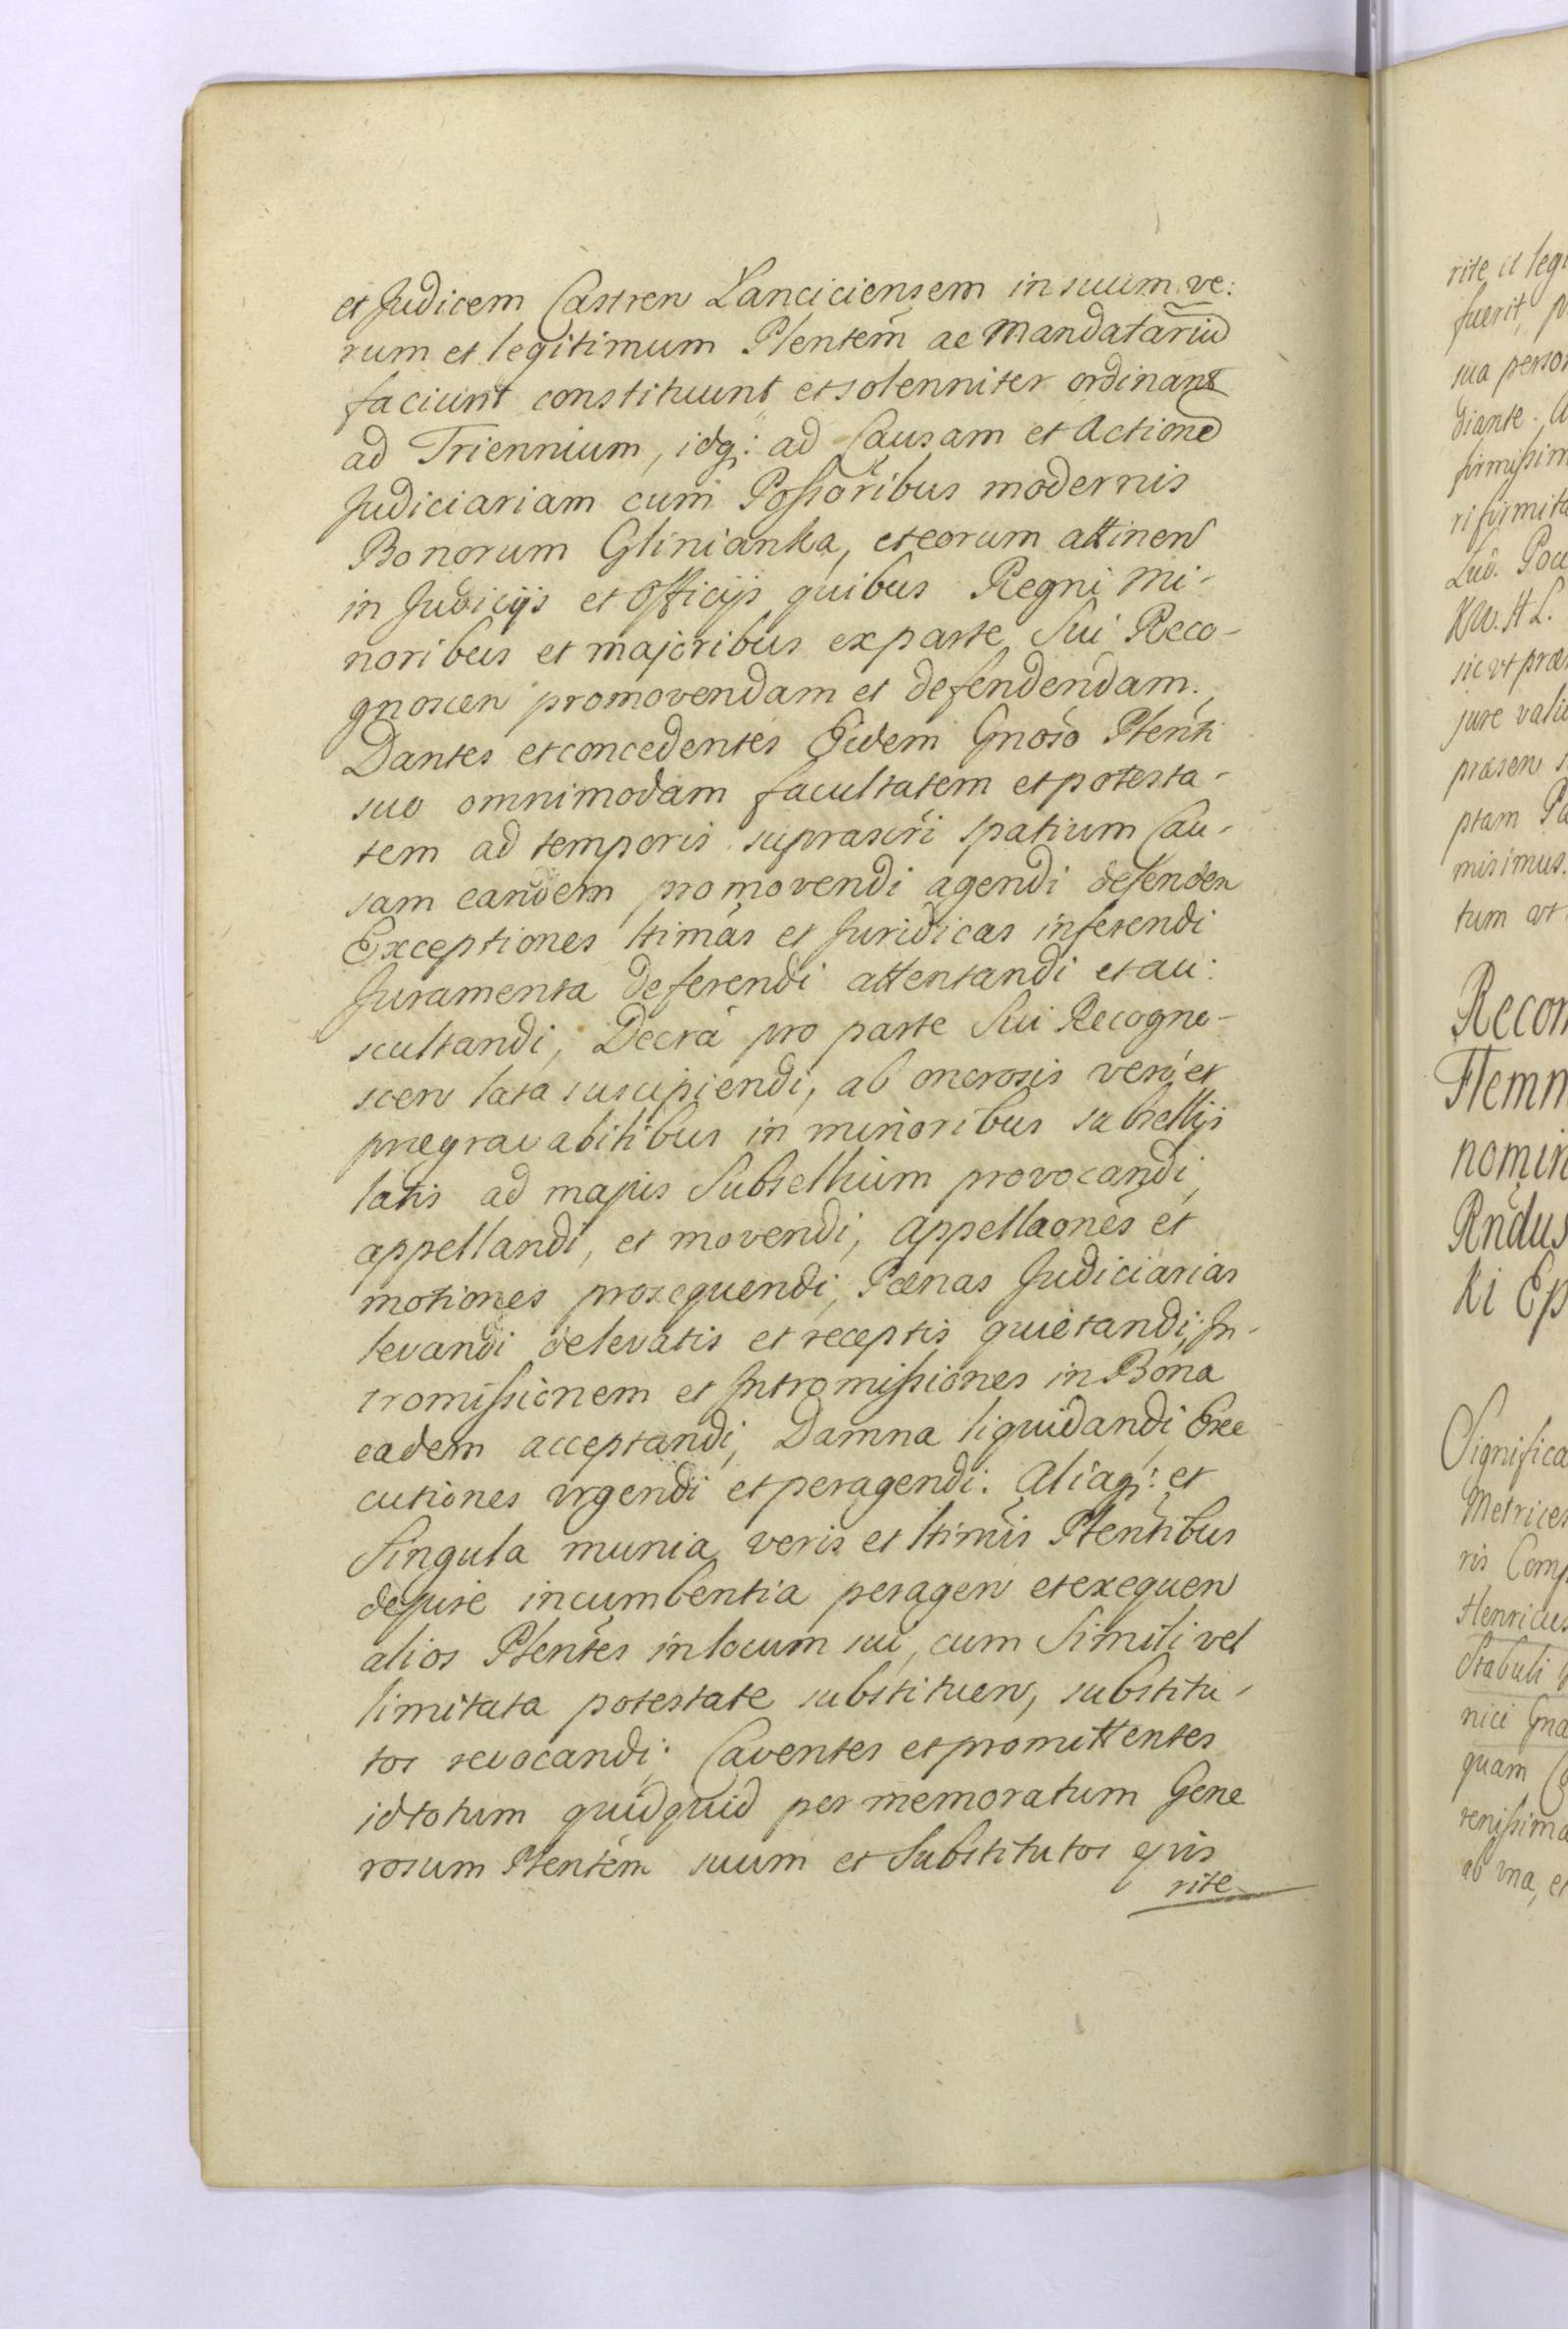 et Judicem Castren Lanciciensem in suum ve:
rum et legitimum Plentem̃ ac Mandatariũ
faciunt constituunt et solenniter ordinant
ad Triennium, idq: ad Causam et Actionẽ
Judiciariam cum Possoribus modernis
Bonorum Glinianka, et eorum attinen
in Judicijs et Officijs quibus Regni Mi-
noribus et majoribus ex parte Sui Reco-
gnoscen promovendam et defendendam.
Dantes et concedentes Eidem Gnoso Plenti
suo omnimodam facultatem et potesta-
tem ad temporis suprascri spatium Cau-
sam eandem promovendi agendi defenden
Exceptiones ltimas et Juridicas inferendi
Juramenta deferendi attentandi et au:
scultandi, Decra pro parte Sui Recogno-
scen lata suscipiendi, ab onerosis vero et
prægravabilibus in minoribus subsellijs
latis ad majus Subsellium provocandi,
appellandi, et movendi, Appellaones et
motiones prosequendi, Pœnas Judiciarias
levandi de levatis et receptis quietandi, In-
tromissionem et Intromissiones in Bona
eadem acceptandi, Damna liquidandi Exe
cutiones urgendi et peragendi. Aliaq: et
Singula munia veris et ltimis Plentibus
de jure incumbentia peragen et exequen
alios Plentes in locum sui, cum Simili vel
limitata potestate substituen, substitu-
tos revocandi; Caventes et promittentes
id totum quidquid per memoratum Gene
rosum Plentem suum et Substitutos ejus
rite
rite et legi
fuerit,
sua person
diante.
firmissim
ri firmit
Lud. Poci
sic ut præ
jure vali
præsen
ptam
misimus.
tum ut
Recon
Flemm
nomin
Rndus
ki Ep
Significa
Metrices
ris Comp
Henricus
Stabuli
nici Gna
quam
renissima
ab una, et